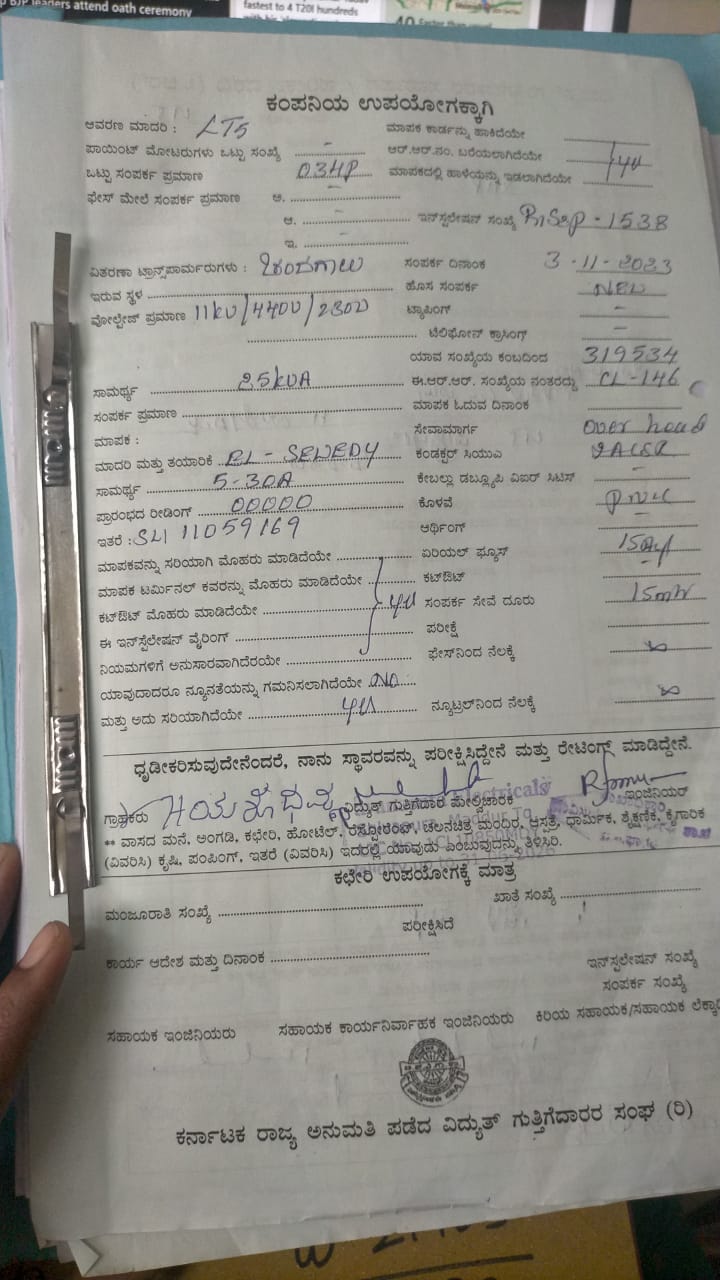 BJP leaders attend oath ceremony
fastest to 4 T20I hundreds
40 Faster than
ಕಂಪನಿಯ ಉಪಯೋಗಕ್ಕಾಗಿ
ಆವರಣ ಮಾದರಿ : LT5 ಮಾಪಕ ಕಾರ್ಡನ್ನು ಹಾಕಿದೆಯೇ
ಪಾಯಿಂಟ್ ಮೋಟರುಗಳು ಒಟ್ಟು ಸಂಖ್ಯೆ - ಆರ್.ಆರ್.ನಂ. ಬರೆಯಲಾಗಿದೆಯೇ
ಒಟ್ಟು ಸಂಪರ್ಕ ಪ್ರಮಾಣ 03HP ಮಾಪಕದಲ್ಲಿ ಹಾಳೆಯನ್ನು ಇಡಲಾಗಿದೆಯೇ
ಫೇಸ್ ಮೇಲೆ ಸಂಪರ್ಕ ಪ್ರಮಾಣ ಅ. -
ಆ. - ಇನ್‌ಸ್ಪಲೇಷನ್ ಸಂಖ್ಯೆ - 1538
ಇ. -
ವಿತರಣಾ ಟ್ರಾನ್ಸ್‌ಪಾರ್ಮರುಗಳು : ಸಂಪರ್ಕ ದಿನಾಂಕ 3-11-2023
ಇರುವ ಸ್ಥಳ ಹೊಸ ಸಂಪರ್ಕ NEW
ವೋಲ್ಟೇಜ್ ಪ್ರಮಾಣ 11kV/440V/230V ಟ್ಯಾಪಿಂಗ್ -
ಟೆಲಿಫೋನ್ ಕ್ರಾಸಿಂಗ್ -
ಯಾವ ಸಂಖ್ಯೆಯ ಕಂಬದಿಂದ 319534
ಸಾಮರ್ಥ್ಯ 25kVA ಈ.ಆರ್.ಆರ್. ಸಂಖ್ಯೆಯ ನಂತರದ್ದು CL-146
ಸಂಪರ್ಕ ಪ್ರಮಾಣ ಮಾಪಕ ಓದುವ ದಿನಾಂಕ
ಮಾಪಕ : ಸೇವಾಮಾರ್ಗ Over head
ಮಾದರಿ ಮತ್ತು ತಯಾರಿಕೆ ಕಂಡಕ್ಟರ್ ಸಿಯುಎ
ಸಾಮರ್ಥ್ಯ 5-30A ಕೇಬಲ್ಲು ಡಬ್ಲ್ಯೂಪಿ ವಿಐರ್ ಸಿಟಿಸಿ -
ಪ್ರಾರಂಭದ ರೀಡಿಂಗ್ 00000 ಕೊಳವೆ
ಇತರೆ : SL 11059169 ಆರ್ಥಿಂಗ್ -
ಮಾಪಕವನ್ನು ಸರಿಯಾಗಿ ಮೊಹರು ಮಾಡಿದೆಯೇ ಏರಿಯಲ್ ಫ್ಯೂಸ್
ಮಾಪಕ ಟರ್ಮಿನಲ್ ಕವರನ್ನು ಮೊಹರು ಮಾಡಿದೆಯೇ ಕಟ್‌ಔಟ್ -
ಕಟ್‌ಔಟ್ ಮೊಹರು ಮಾಡಿದೆಯೇ ಸಂಪರ್ಕ ಸೇವೆ ದೂರು
ಈ ಇನ್‌ಸ್ಪಲೇಷನ್ ವೈರಿಂಗ್ ಪರೀಕ್ಷೆ
ನಿಯಮಗಳಿಗೆ ಅನುಸಾರವಾಗಿದೆರೆಯೇ ಫೇಸ್‌ನಿಂದ ನೆಲಕ್ಕೆ ∞
ಯಾವುದಾದರೂ ನ್ಯೂನತೆಯನ್ನು ಗಮನಿಸಲಾಗಿದೆಯೇ NO
ಮತ್ತು ಅದು ಸರಿಯಾಗಿದೆಯೇ ನ್ಯೂಟ್ರಲ್‌ನಿಂದ ನೆಲಕ್ಕೆ ∞
ಧೃಡೀಕರಿಸುವುದೇನೆಂದರೆ, ನಾನು ಸ್ಥಾವರವನ್ನು ಪರೀಕ್ಷಿಸಿದ್ದೇನೆ ಮತ್ತು ರೇಟಿಂಗ್ ಮಾಡಿದ್ದೇನೆ.
ಗ್ರಾಹಕರು ವಿದ್ಯುತ್ ಗುತ್ತಿಗೆದಾರ ಮೇಲ್ವಿಚಾರಕ ಇಂಜಿನಿಯರ್
** ವಾಸದ ಮನೆ, ಅಂಗಡಿ, ಕಛೇರಿ, ಹೋಟೆಲ್, ರೆಸ್ಟೋರೆಂಟ್, ಚಲನಚಿತ್ರ ಮಂದಿರ, ಆಸ್ಪತ್ರೆ, ಧಾರ್ಮಿಕ, ಶೈಕ್ಷಣಿಕ, ಕೈಗಾರಿಕ
(ವಿವರಿಸಿ) ಕೃಷಿ, ಪಂಪಿಂಗ್, ಇತರೆ (ವಿವರಿಸಿ) ಇದರಲ್ಲಿ ಯಾವುದು ಎಂಬುವುದನ್ನು ತಿಳಿಸಿರಿ.
ಕಛೇರಿ ಉಪಯೋಗಕ್ಕೆ ಮಾತ್ರ
ಮಂಜೂರಾತಿ ಸಂಖ್ಯೆ ಖಾತೆ ಸಂಖ್ಯೆ
ಪರೀಕ್ಷಿಸಿದೆ
ಕಾರ್ಯ ಆದೇಶ ಮತ್ತು ದಿನಾಂಕ
ಇನ್‌ಸ್ಪಲೇಷನ್ ಸಂಖ್ಯೆ
ಸಂಪರ್ಕ ಸಂಖ್ಯೆ
ಸಹಾಯಕ ಇಂಜಿನಿಯರು ಸಹಾಯಕ ಕಾರ್ಯನಿರ್ವಾಹಕ ಇಂಜಿನಿಯರು ಕಿರಿಯ ಸಹಾಯಕ/ಸಹಾಯಕ
ಕರ್ನಾಟಕ ರಾಜ್ಯ ಅನುಮತಿ ಪಡೆದ ವಿದ್ಯುತ್ ಗುತ್ತಿಗೆದಾರರ ಸಂಘ (ರಿ)